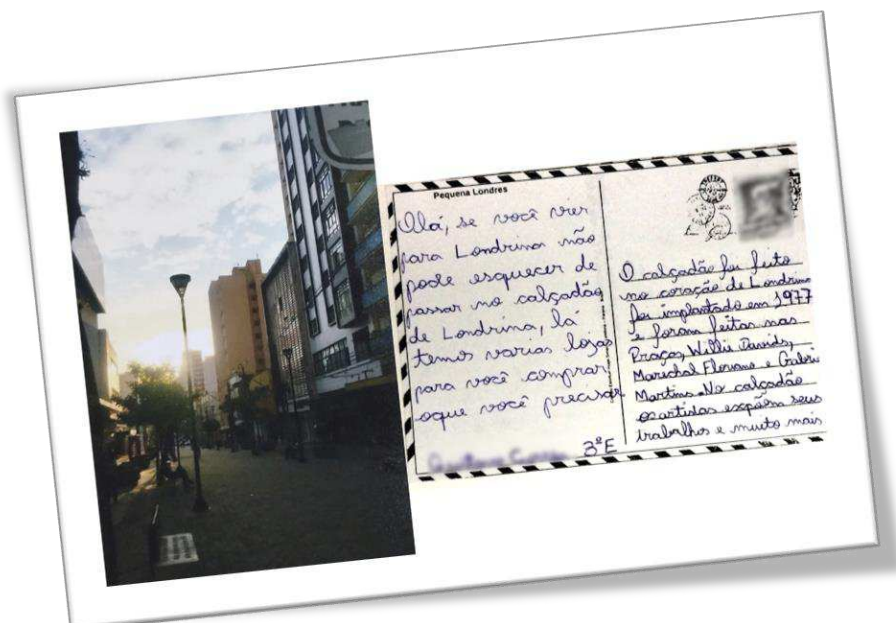 Pequena Londres
Olá, se você vier
para Londrina não
pode esquecer de
passar no calçadão
de Londrina, lá
temos varias lojas
para você comprar
oque você precisar
3ºE
O calçadão foi feito
no coração de Londrina
foi implantado em 1977
e foram feitas nas
Praças, Willie Davids,
Marechal Floriano e Gabri
Martins. No calçadão
os artistas expõem seus
trabalhos e muito mais